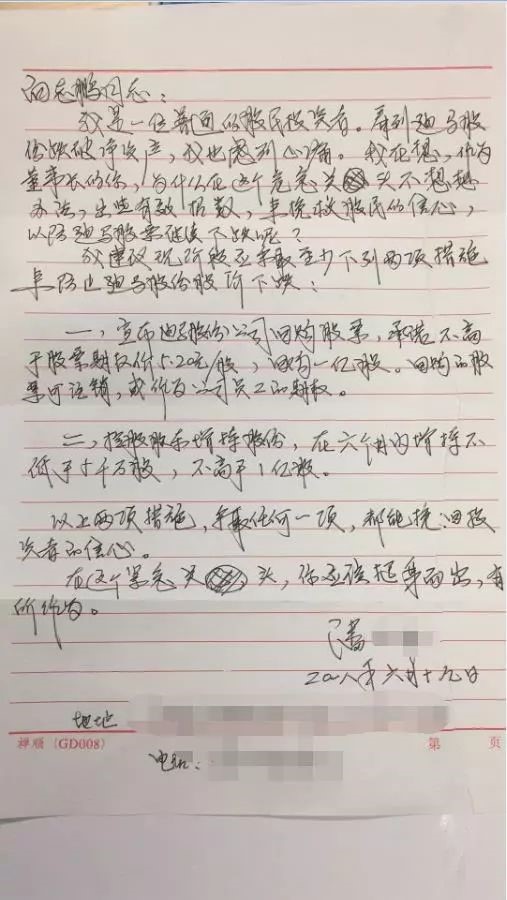 向志鹏同志：
我是一位普通的股民投资者。看到迪马股
份跌破净资产，我也感到心痛。我在想，作为
董事长的你，为什么在这个危急关头不想想
办法，出些有效招数，来挽救股民的信心，
以防迪马股票继续下跌呢？
我建议现阶段应采取至少下列两项措施
来防止迪马股份股价下跌：
一，宣布迪马股份公司回购股票，承诺不高
于股票期权价5.20元/股，回购一亿股。回购的股
票可注销，或作为公司员工的期权。
二，控股股东增持股份，在六个月内增持不
低于5千万股，不高于1亿股。
以上两项措施，采取任何一项，都能挽回投
资者的信心。
在这个紧急关头，你应该挺身而出，有
所作为。
潘
二〇一八年六月十九日
地址
禅顺（GD008） 第 页
电话：